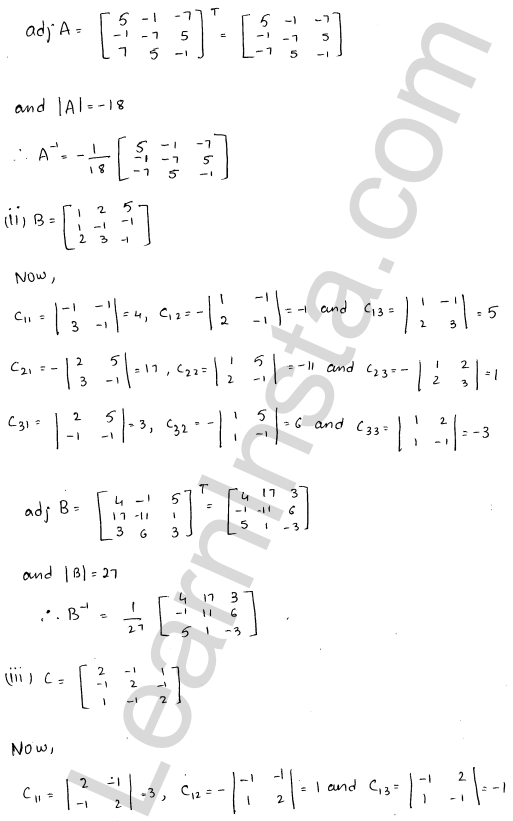 adj A = [5 -1 -7; -1 -7 5; 7 5 -1]ᵀ = [5 -1 -7; -1 -7 5; -7 5 -1]
and |A| = -18
∴ A⁻¹ = -1/18 [5 -1 -7; -1 -7 5; -7 5 -1]
(ii) B = [1 2 5; 1 -1 -1; 2 3 -1]
Now,
C₁₁ = |-1 -1; 3 -1| = 4, C₁₂ = -|1 -1; 2 -1| = -1 and C₁₃ = |1 -1; 2 3| = 5
C₂₁ = -|2 5; 3 -1| = 17, C₂₂ = |1 5; 2 -1| = -11 and C₂₃ = -|1 2; 2 3| = 1
C₃₁ = |2 5; -1 -1| = 3, C₃₂ = -|1 5; 1 -1| = 6 and C₃₃ = |1 2; 1 -1| = -3
adj B = [4 -1 5; 17 -11 1; 3 6 3]ᵀ = [4 17 3; -1 -11 6; 5 1 -3]
and |B| = 27
∴ B⁻¹ = 1/27 [4 17 3; -1 11 6; 5 1 -3]
(iii) C = [2 -1 1; -1 2 -1; 1 -1 2]
Now,
C₁₁ = |2 -1; -1 2| = 3, C₁₂ = -|-1 -1; 1 2| = 1 and C₁₃ = |-1 2; 1 -1| = -1
LearnInsta.com